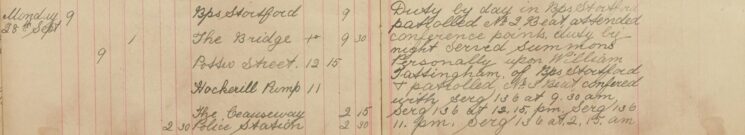 Monday 9 Bps Stortford 9 Duty by day in Bps Stortford
28th Sept patrolled No 2 Beat attended
1 The Bridge to 9 30 conference points, duty by
9 night Served Summons
Potter Street 12 15 Personally upon William
Tassingham, of Bps Stortford
Hockerill Pump 11 & patrolled, No 1 Beat confered
with Serg 136 at 9.30 am,
The Causeway 2 15 Serg 136 at 2.15. pm, Serg 136
2 30 Police Station 2 30 11. pm, Serg 136 at, 2,15 am